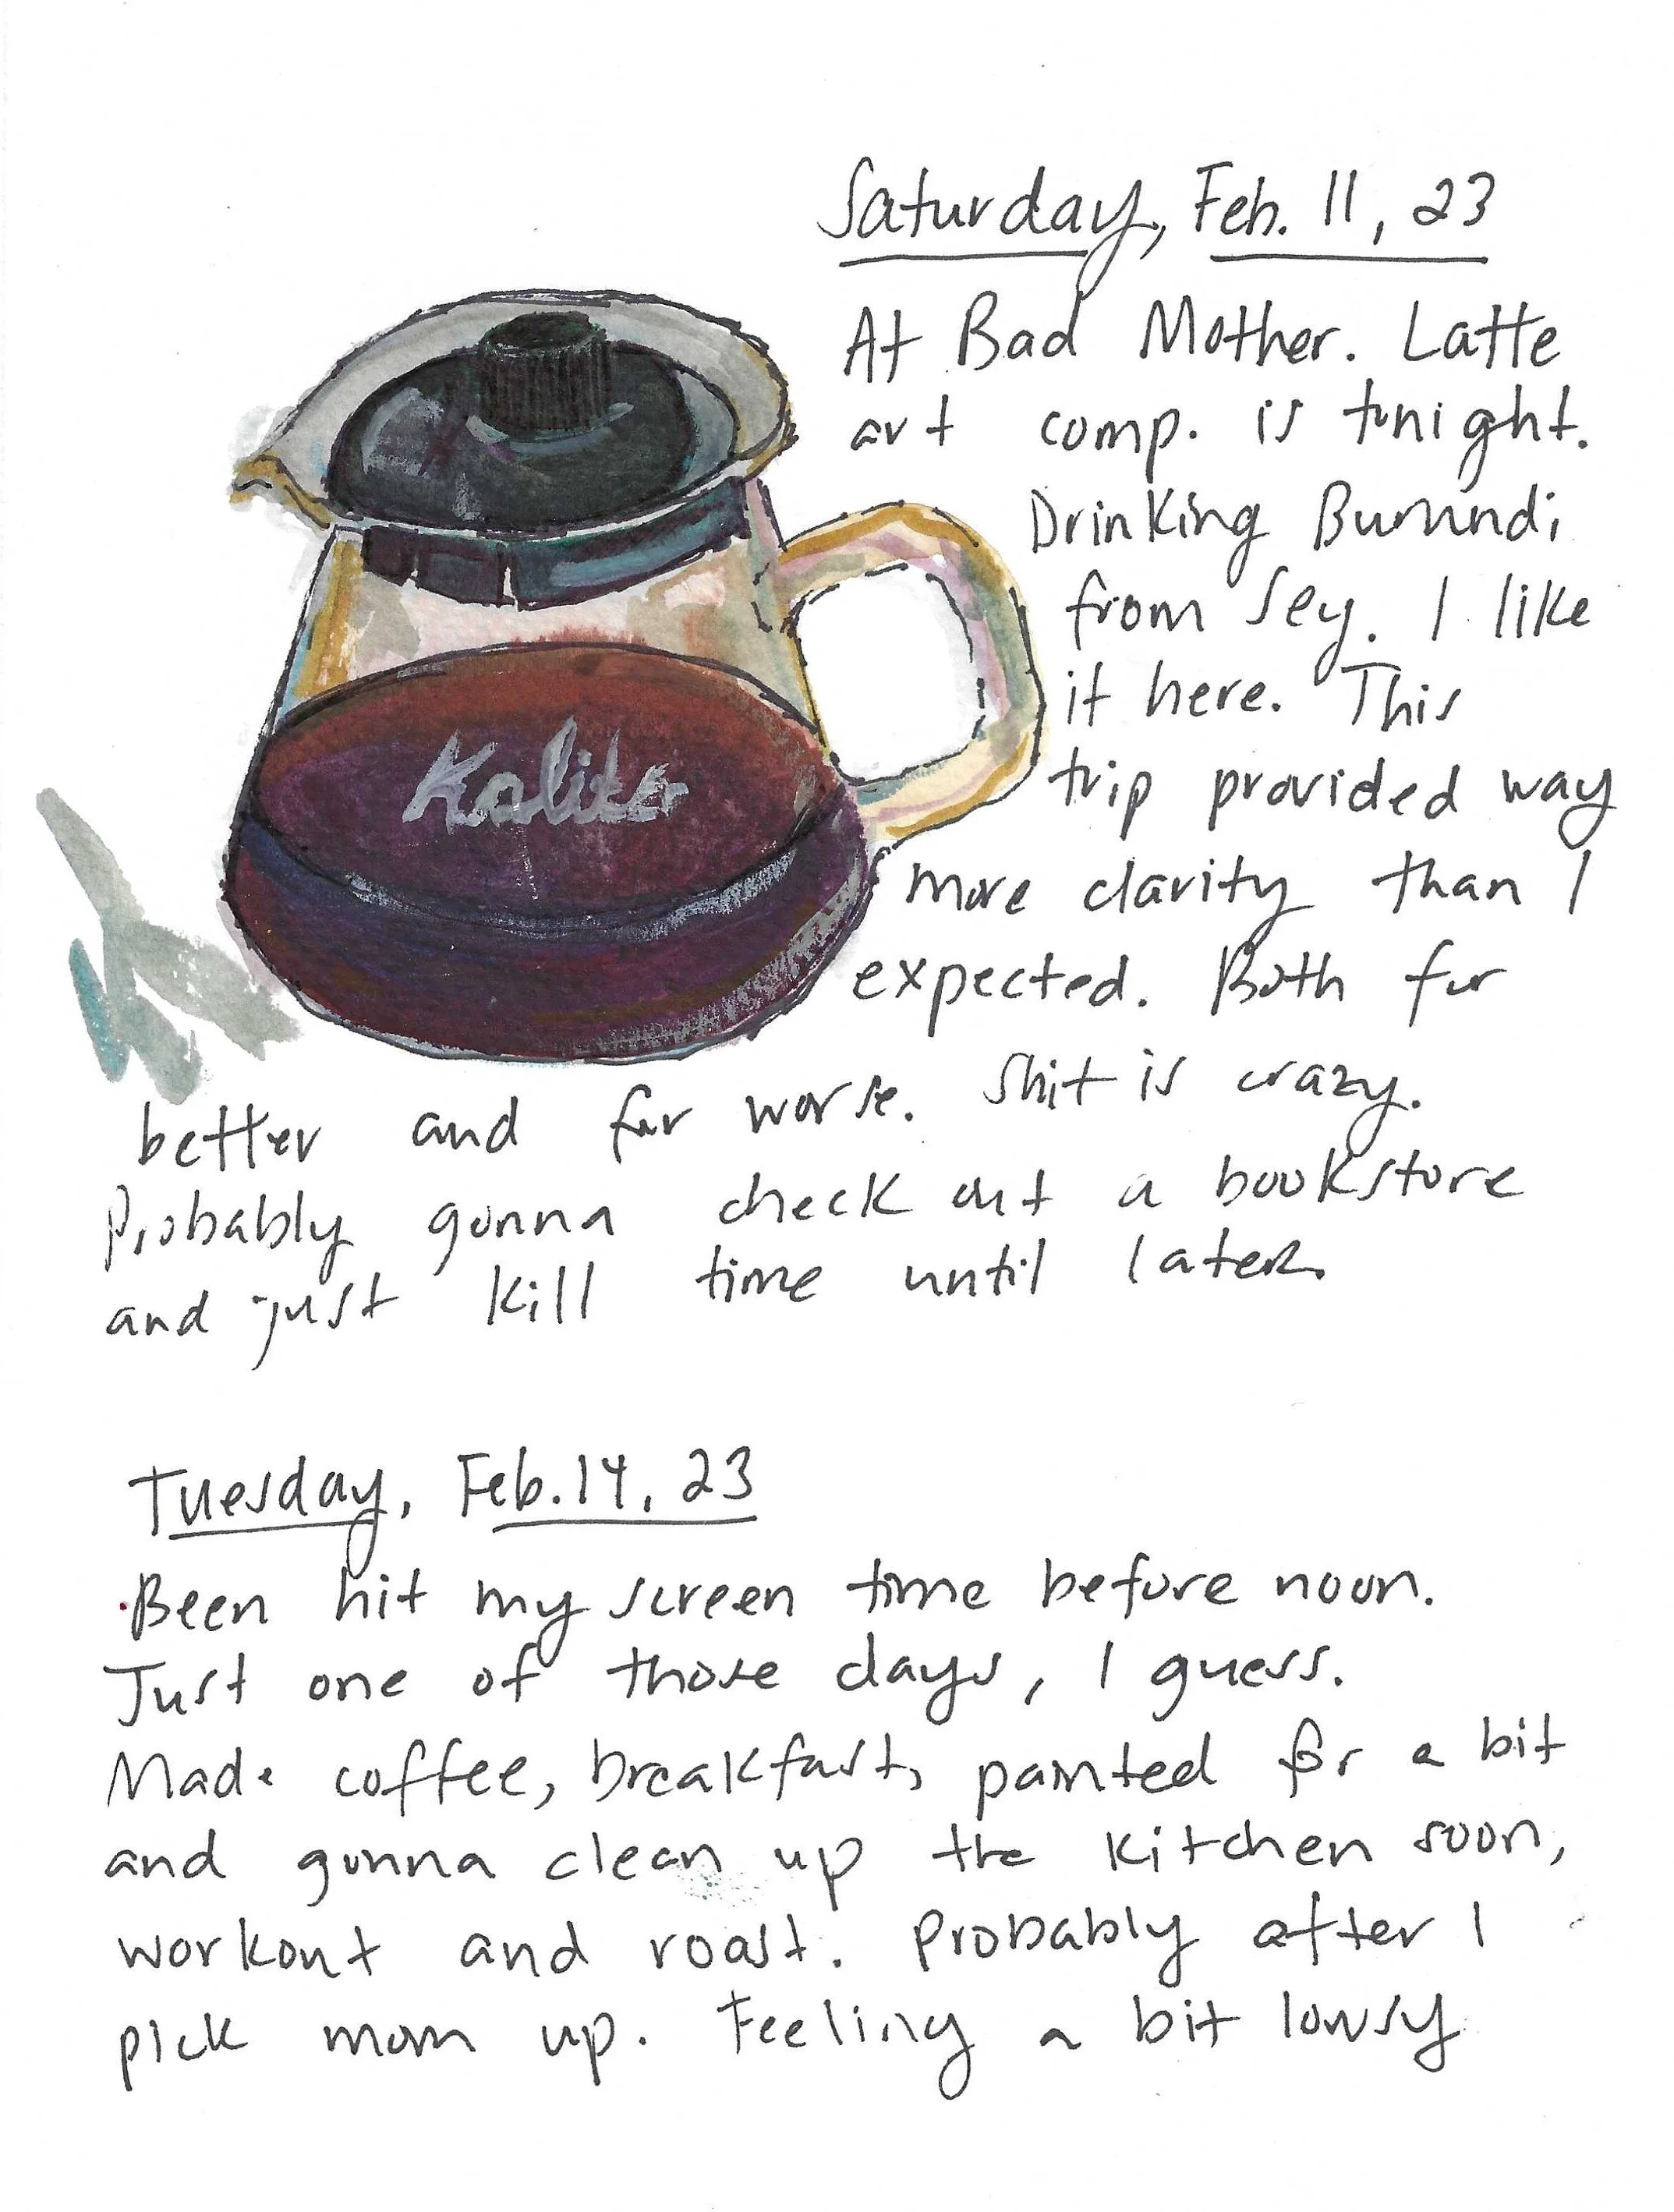 Saturday, Feb. 11, 23
At Bad Mother. Latte
art comp. is tonight.
Drinking Burundi
from Sey. I like
it here. This
trip provided way
more clarity than I
expected. Both for
better and for worse. Shit is crazy.
Probably gonna check out a bookstore
and just kill time until later.
Kalita
Tuesday, Feb. 14, 23
Been hit my screen time before noon.
Just one of those days, I guess.
Made coffee, breakfast, painted for a bit
and gonna clean up the kitchen soon,
workout and roast. Probably after I
pick mom up. Feeling a bit lowsy